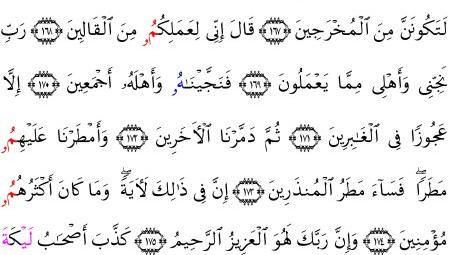 لَتَكُونَنَّ مِنَ ٱلْمُخْرَجِينَ ﴿١٦٧﴾ قَالَ إِنِّى لِعَمَلِكُمُۥ مِنَ ٱلْقَالِينَ ﴿١٦٨﴾ رَبِّ
نَجِّنِى وَأَهْلِى مِمَّا يَعْمَلُونَ ﴿١٦٩﴾ فَنَجَّيْنَـٰهُۥ وَأَهْلَهُۥٓ أَجْمَعِينَ ﴿١٧٠﴾ إِلَّا
عَجُوزًا فِى ٱلْغَـٰبِرِينَ ﴿١٧١﴾ ثُمَّ دَمَّرْنَا ٱلْأَخَرِينَ ﴿١٧٢﴾ وَأَمْطَرْنَا عَلَيْهِمُۥ
مَطَرًاۖ فَسَآءَ مَطَرُ ٱلْمُنذَرِينَ ﴿١٧٣﴾ إِنَّ فِى ذَٰلِكَ لَأَيَةًۖ وَمَا كَانَ أَكْثَرُهُمُۥ
مُؤْمِنِينَ ﴿١٧٤﴾ وَإِنَّ رَبَّكَ لَهُوَ ٱلْعَزِيزُ ٱلرَّحِيمُ ﴿١٧٥﴾ كَذَّبَ أَصْحَـٰبُ لَيْكَةَ